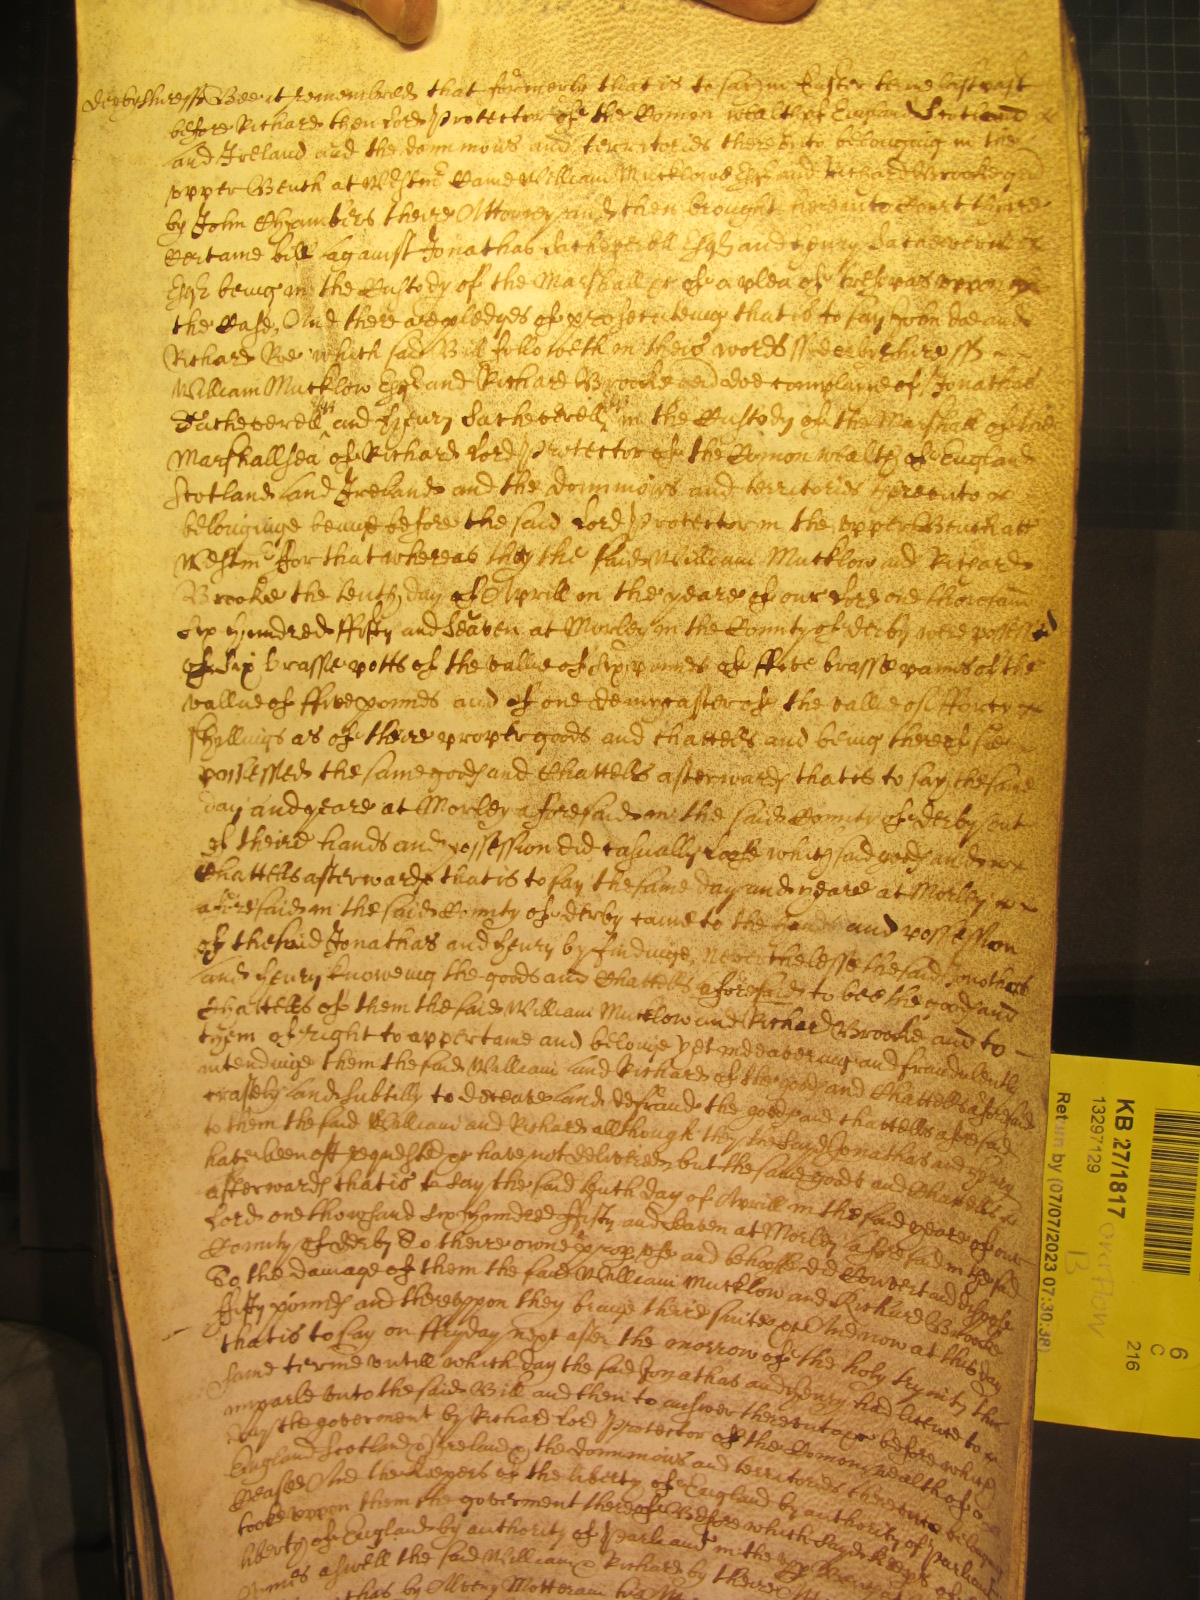 Derbyshire ss Bee it remembred that formerly that is to say in Easter terme last past
before Richard then Lord Protector of the Comon wealth of England Scotland
and Ireland and the dominions and territories thereunto belonging in the
upper Bench at Westmr Came William Mucklowe Esqr and Richard Brooke gen
by John Chambers theire Attorney and then brought here into Court theire
Certaine bill against Jonathas Sacheverell Esqr and Henry Sacheverell
Esqr being in the Custody of the Marshall &c of a plea of trespas uppon
the Case, And there are pledges of prosecuteing that is to say John Doe and
Richard Roe which said Bill followeth in theis words ss Derbyshire ss
William Mucklow Esqr and Richard Brooke gen doe complaine of Jonathas
Sacheverell and Henry Sacheverell in the Custody of the Marshall of the
Marshallsea of Richard Lord Protector of the Comon wealth of England
Scotland and Ireland and the dominions and territories thereunto
belonginge beinge before the said Lord Protector in the upper Bench att
Westmr For that whereas they the said William Mucklow and Richard
Brooke the tenth day of Aprill in the yeare of our Lord one thousand
six hundred fifty and seaven at Morley in the County of Derby were possessed
of six brasse potts of the value of six pounds of ffive brasse panns of the
vallue of ffive pounds and of one of the vallue of fforty
shillings as of theire proper goods and chattells and being thereof soe
possessed the same goods and Chattells afterwards that is to say the same
day and yeare at Morley aforesaid in the said County of Derby out
of theire hands and possession did casually loose which said goods and
Chattells afterwards that is to say the same day and yeare at Morley
aforesaid in the said County of Derby came to the hands and possession
of the said Jonathas and Henry by findinge, Neverthelesse the said Jonathas
and Henry knoweing the goods and Chattells aforesaid to bee the goods and
Chattells of them the said William Mucklow and Richard Brooke and to
them of right to appertaine and belonge yet indeavoring and fraudulently
intendinge them the said William and Richard of the goods and Chattells aforesaid
craftely and subtilly to deceave and defraude the goods and chattells aforesaid
to them the said William and Richard although they the said Jonathas and Henry
have been oft requested &c have not delivered but the same goods and Chattells
afterwards that is to say the said tenth day of Aprill in the said yeare of our
Lord one thowsand six hundred ffifty and seaven at Morley aforesaid in the said
County of Derby to theire owne proper use and behoofe did Convert and dispose
To the damage of them the said William Mucklow and Richard Brooke
ffifty pounds and thereuppon they bringe theire suite &c And now at this day
that is to say on ffryday next after the morrow of the holy trynity this
same terme untill which day the said Jonathas and Henry had licence to
imparle unto the said Bill and then to answer thereunto &c before which
day the goverment by Richard Lord Protector of the Comonwealth of
England Scotland & Ireland & the dominions and territories thereunto belonging
Ceased And the Keepers of the liberty of England by authority of Parliamt
tooke uppon them the goverment thereof Before which said Keepers of the
liberty of England by authority of Parliamt in the upper Bench
Comes aswell the said William & Richard by theire Attorney
by Motteram his
KB 27/1817
13297129
Return by (07/07/2023 07:30:38)
overflow
B
6
C
216